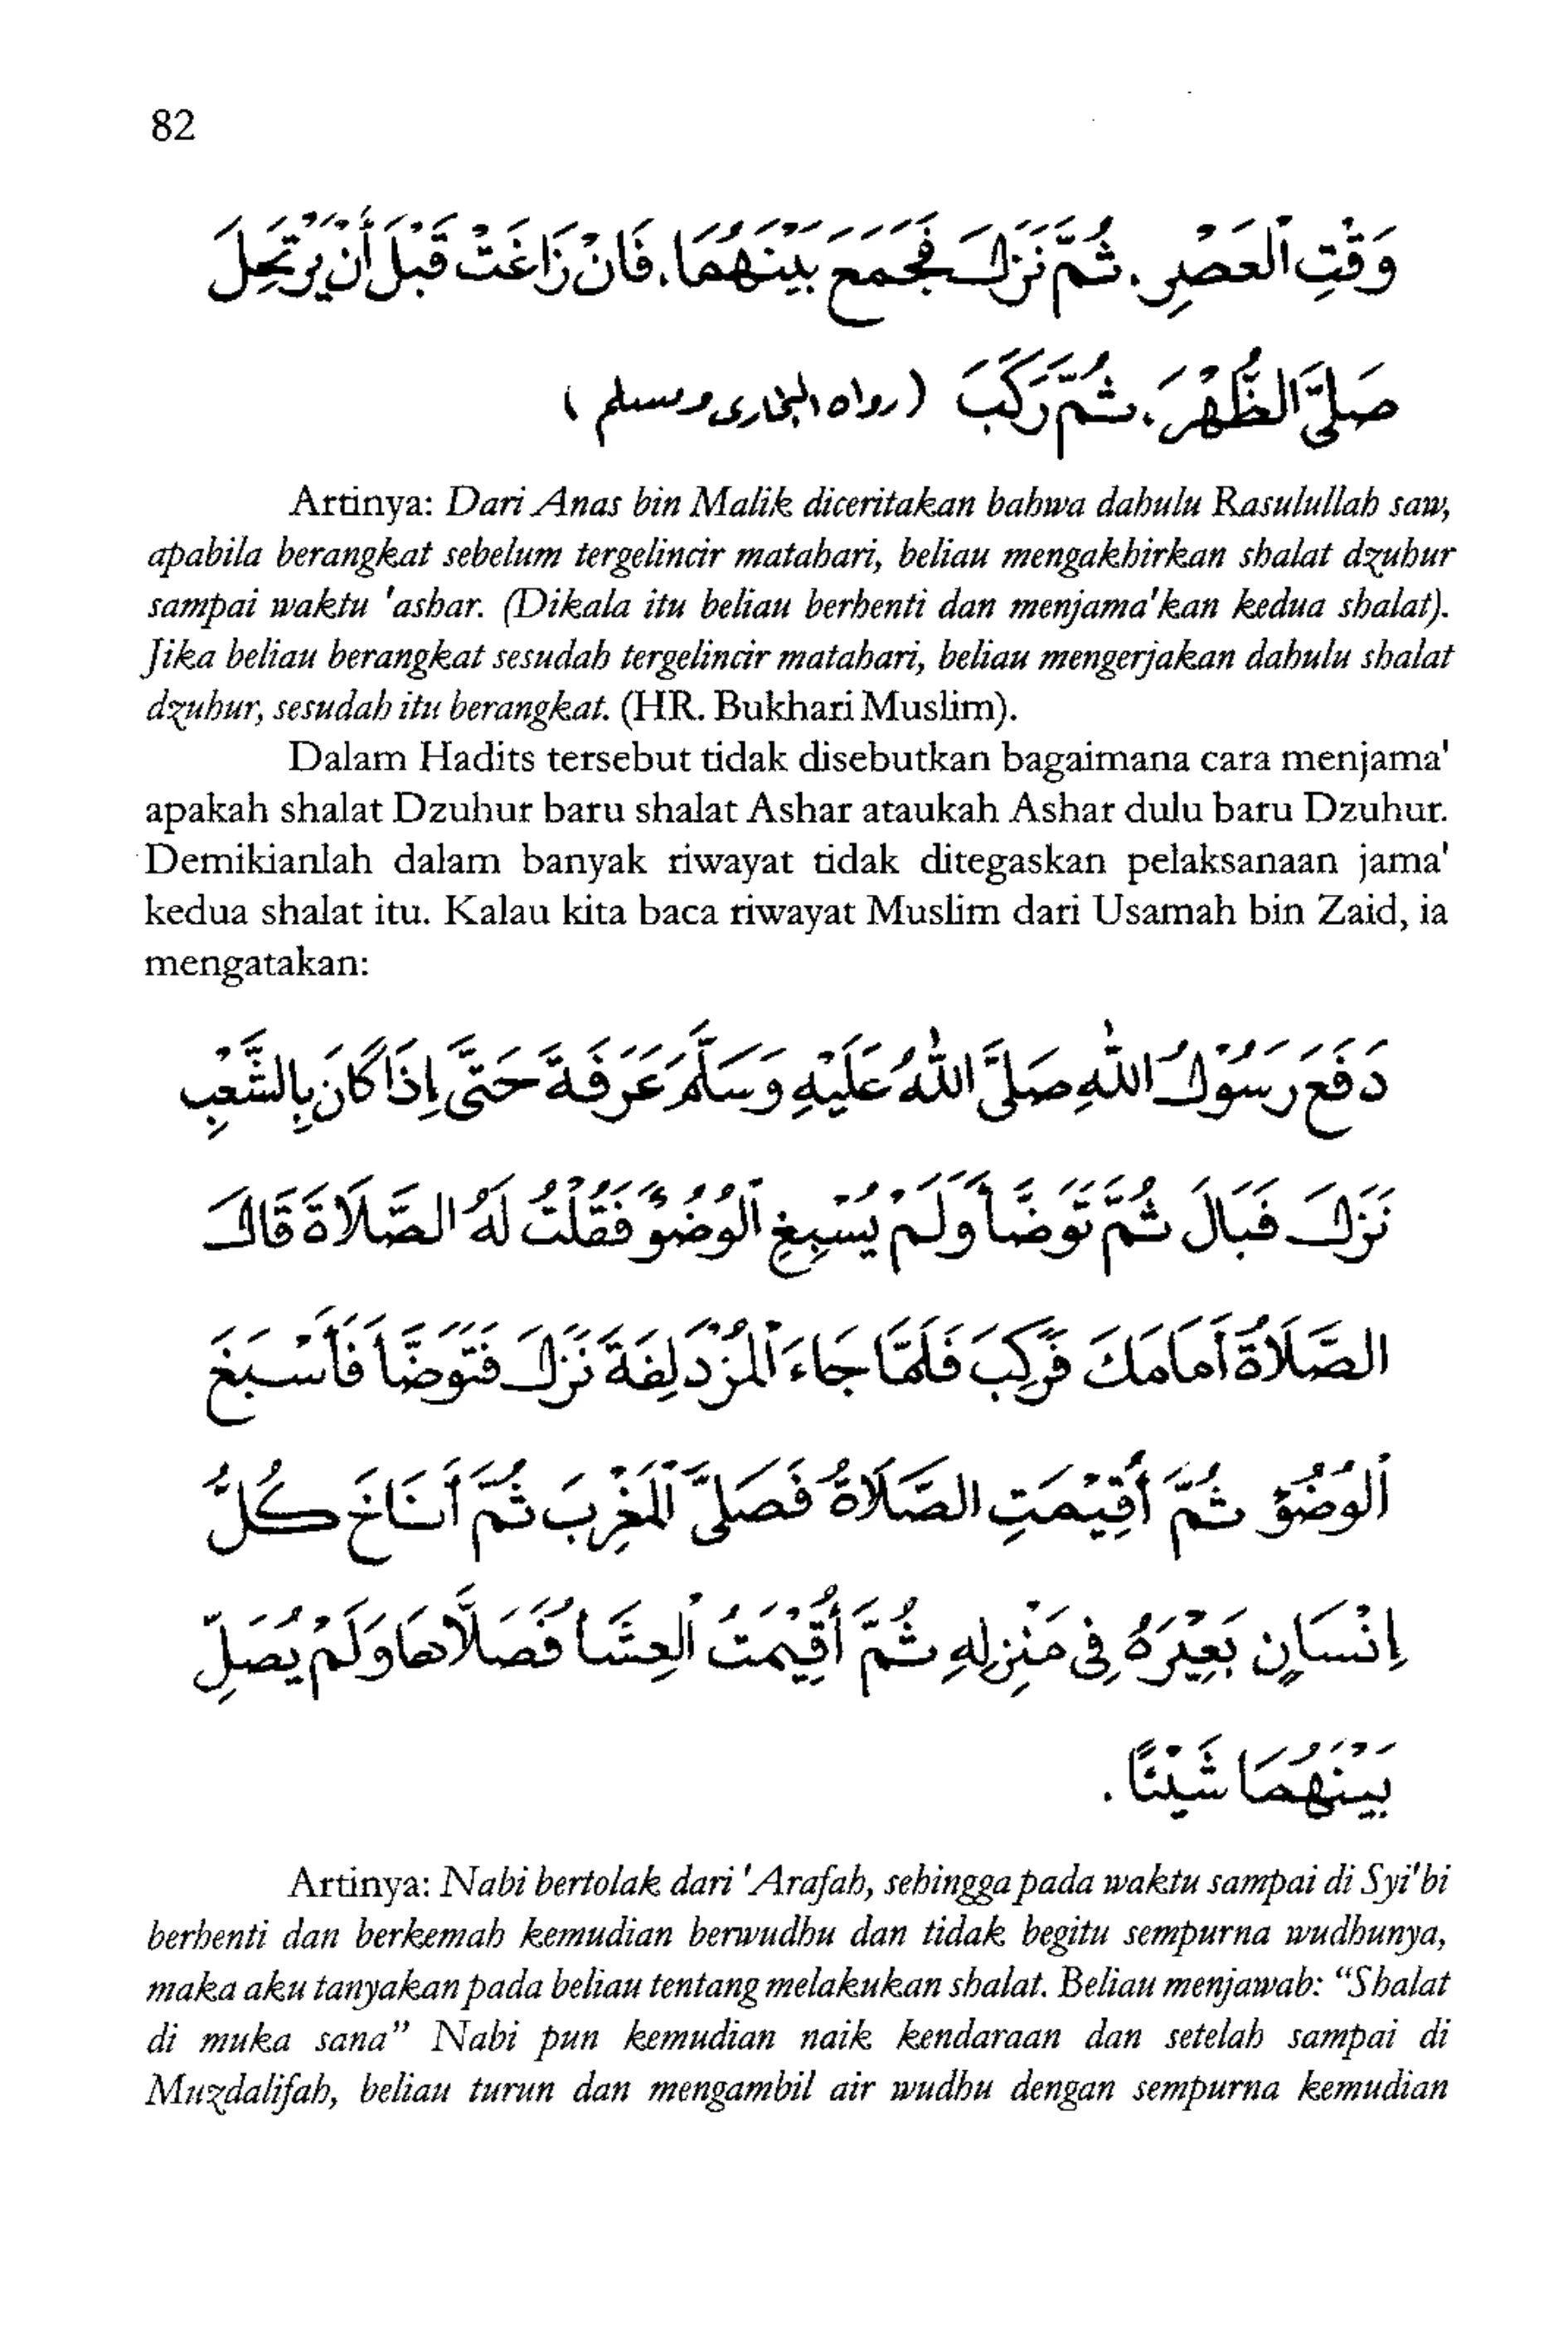 82
وَقْتِ الْعَصْرِ. ثُمَّ نَزَلَ فَجَمَعَ بَيْنَهُمَا. فَانْ زَاغَتْ قَبْلَ أَنْ يَرْتَحِلَ
صَلَّى الظُّهْرَ. ثُمَّ رَكَبَ (رواه البخارى ومسلم)
Artinya: Dari Anas bin Malik diceritakan bahwa dahulu Rasulullah saw,
apabila berangkat sebelum tergelincir matahari, beliau mengakhirkan shalat dzuhur
sampai waktu 'ashar. (Dikala itu beliau berhenti dan menjama'kan kedua shalat).
Jika beliau berangkat sesudah tergelincir matahari, beliau mengerjakan dahulu shalat
dzuhur, sesudah itu berangkat. (HR. Bukhari Muslim).
Dalam Hadits tersebut tidak disebutkan bagaimana cara menjama'
apakah shalat Dzuhur baru shalat Ashar ataukah Ashar dulu baru Dzuhur.
Demikianlah dalam banyak riwayat tidak ditegaskan pelaksanaan jama'
kedua shalat itu. Kalau kita baca riwayat Muslim dari Usamah bin Zaid, ia
mengatakan:
دَفَعَ رَسُوْلُ اللهِ صَلَّى اللهُ عَلَيْهِ وَسَلَّمَ عَرَفَةَ حَتَّى اِذَا كَانَ بِالشَّعْبِ
نَزَلَ فَبَالَ ثُمَّ تَوَضَّأَ وَلَمْ يُسْبِغِ الْوُضُوْءَ فَقُلْتُ لَهُ الصَّلَاةَ قَالَ
الصَّلَاةُ اَمَامَكَ فَرَكِبَ فَلَمَّا جَاءَ الْمُزْدَلِفَةَ نَزَلَ فَتَوَضَّأَ فَأَسْبَغَ
الْوُضُوْءَ ثُمَّ أُقِيْمَتِ الصَّلَاةُ فَصَلَّى الْمَغْرِبَ ثُمَّ اَنَاخَ كُلُّ
اِنْسَانٍ بَعِيْرَهُ فِى مَنْزِلِهِ ثُمَّ أُقِيْمَتُ الْعِشَاءُ فَصَلَّاهَا وَلَمْ يُصَلِّ
بَيْنَهُمَا شَيْئًا.
Artinya: Nabi bertolak dari 'Arafah, sehingga pada waktu sampai di Syi'bi
berhenti dan berkemah kemudian berwudhu dan tidak begitu sempurna wudhunya,
maka aku tanyakan pada beliau tentang melakukan shalat. Beliau menjawab: “Shalat
di muka sana” Nabi pun kemudian naik kendaraan dan setelah sampai di
Muzdalifah, beliau turun dan mengambil air wudhu dengan sempurna kemudian